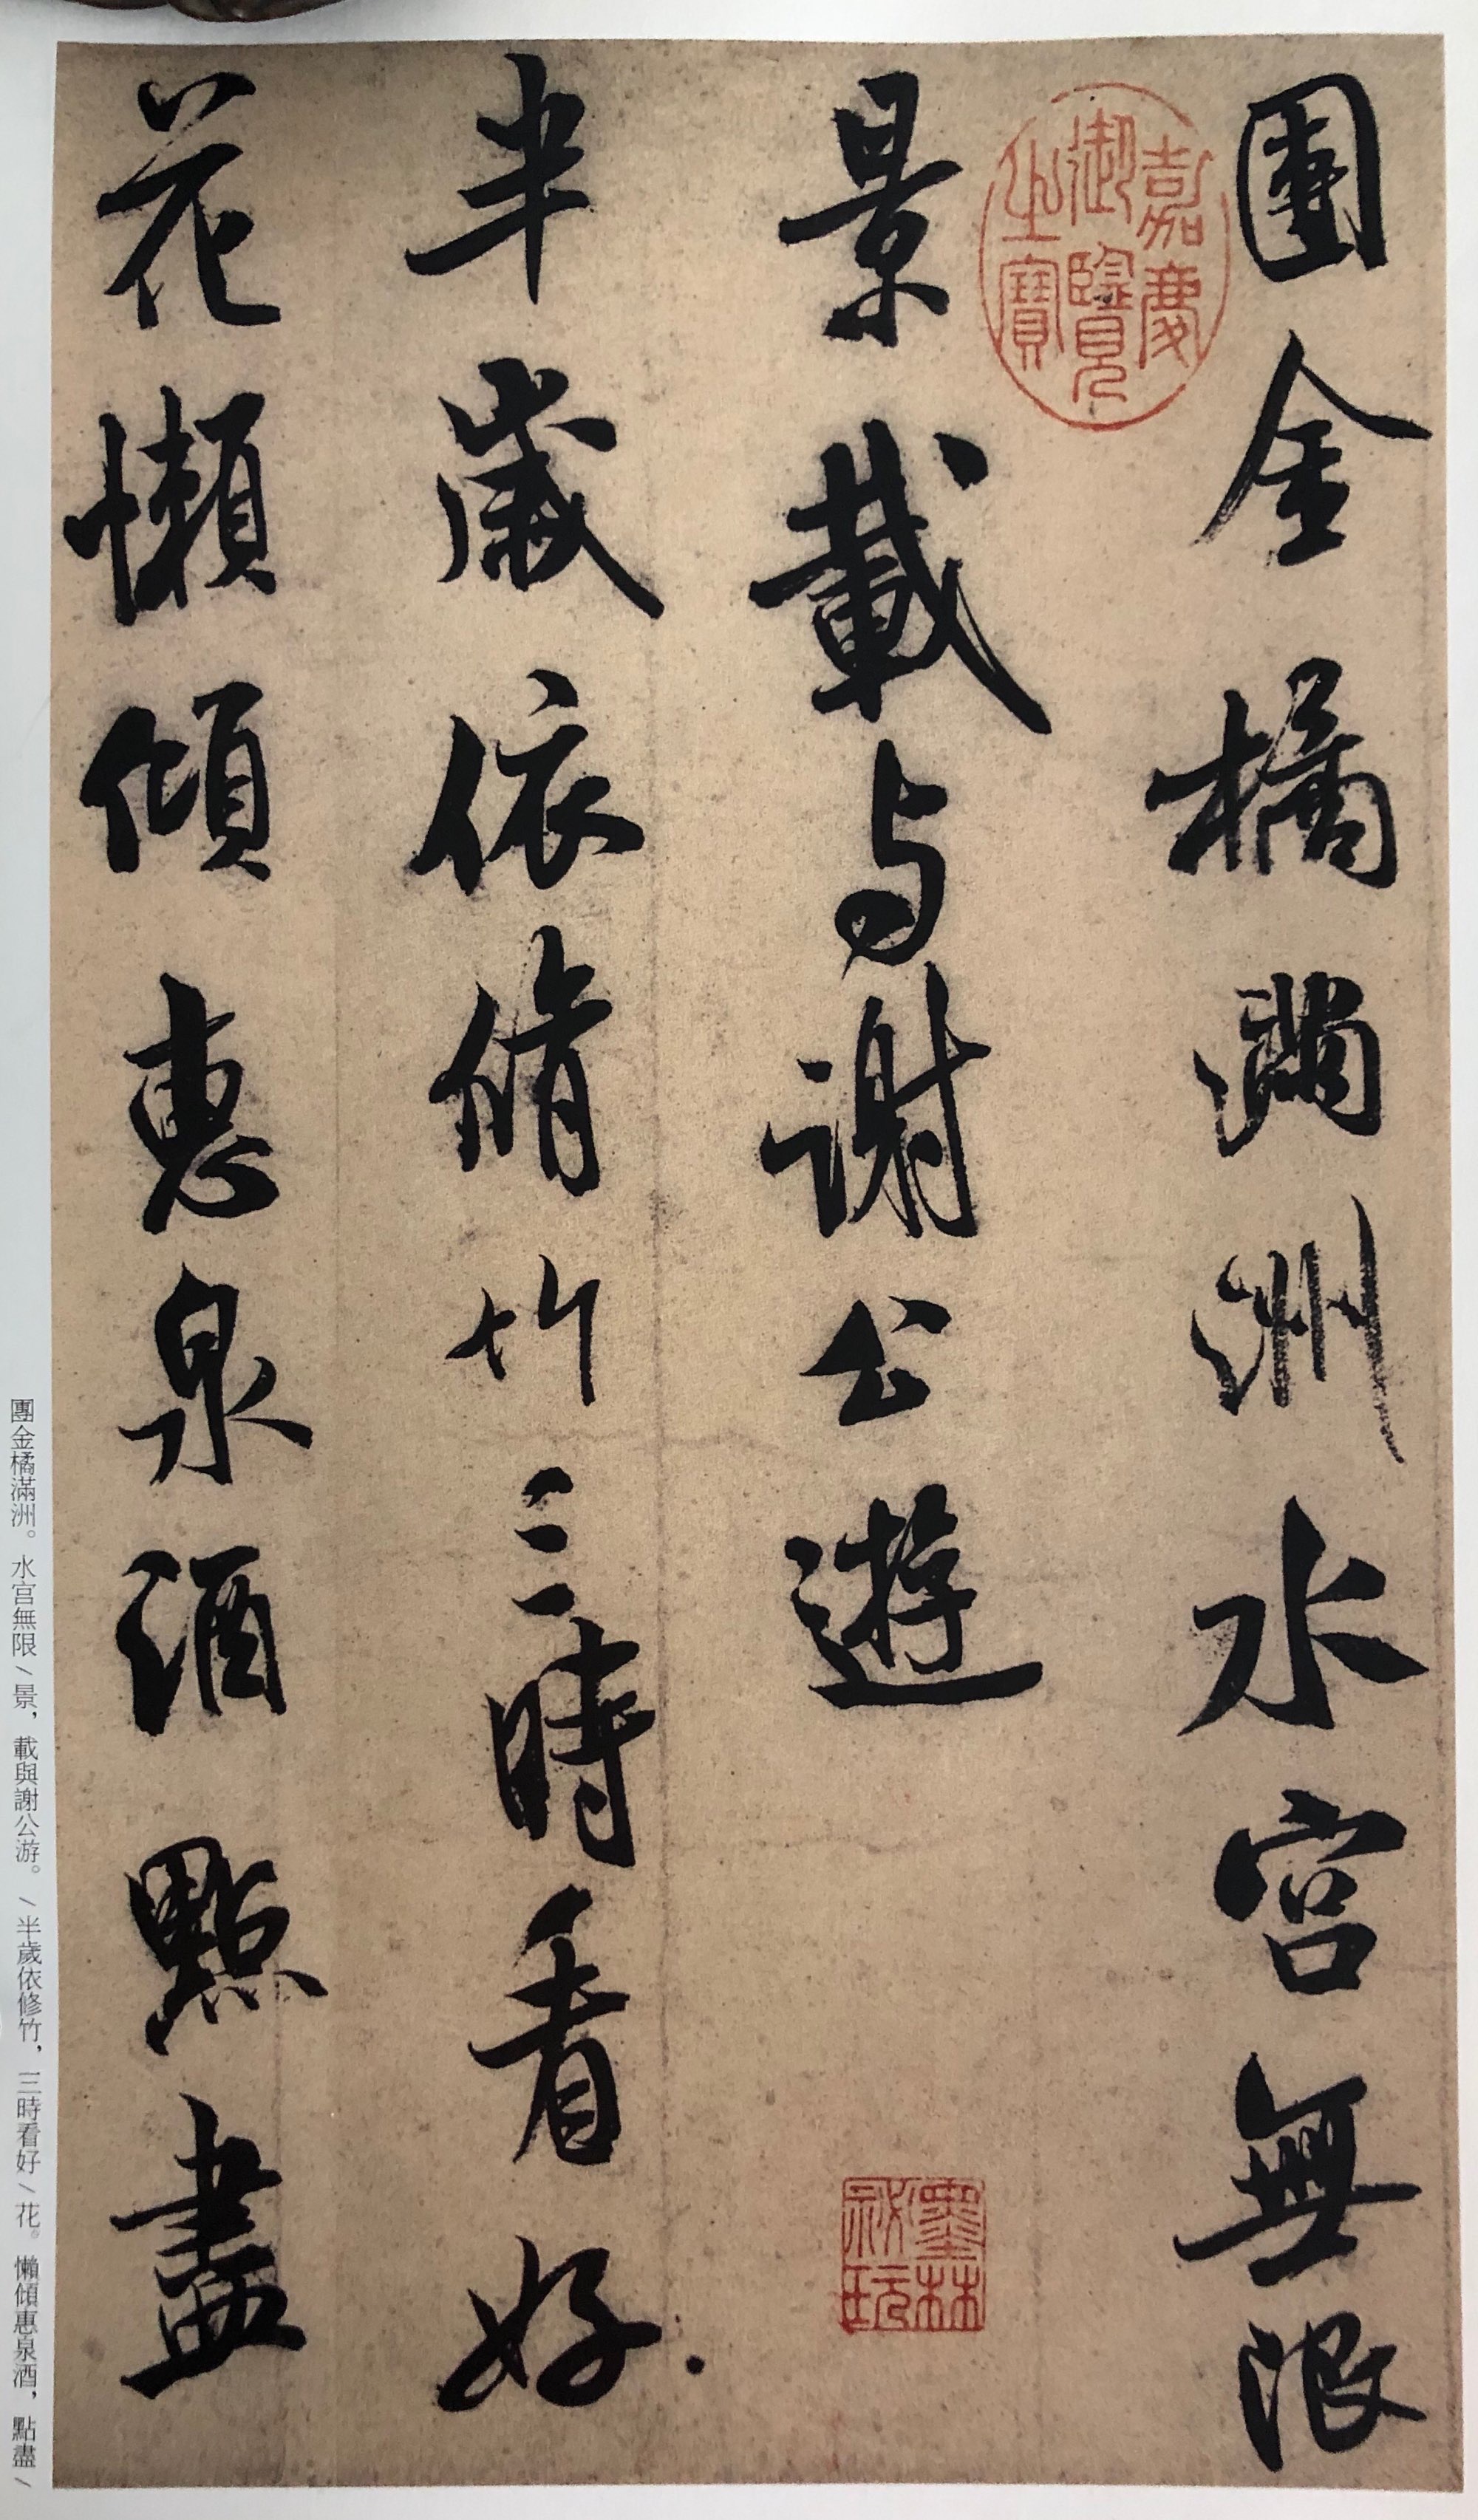 團金橘滿洲水宮無限
景載与謝公遊
半歲依脩竹三時看好
花懶傾惠泉酒點盡
嘉慶
御覽
之寶
墨林
祕玩
團金橘滿洲。水宮無限／景，載與謝公游。／半歲依修竹，三時看好／花。懶傾惠泉酒，點盡／